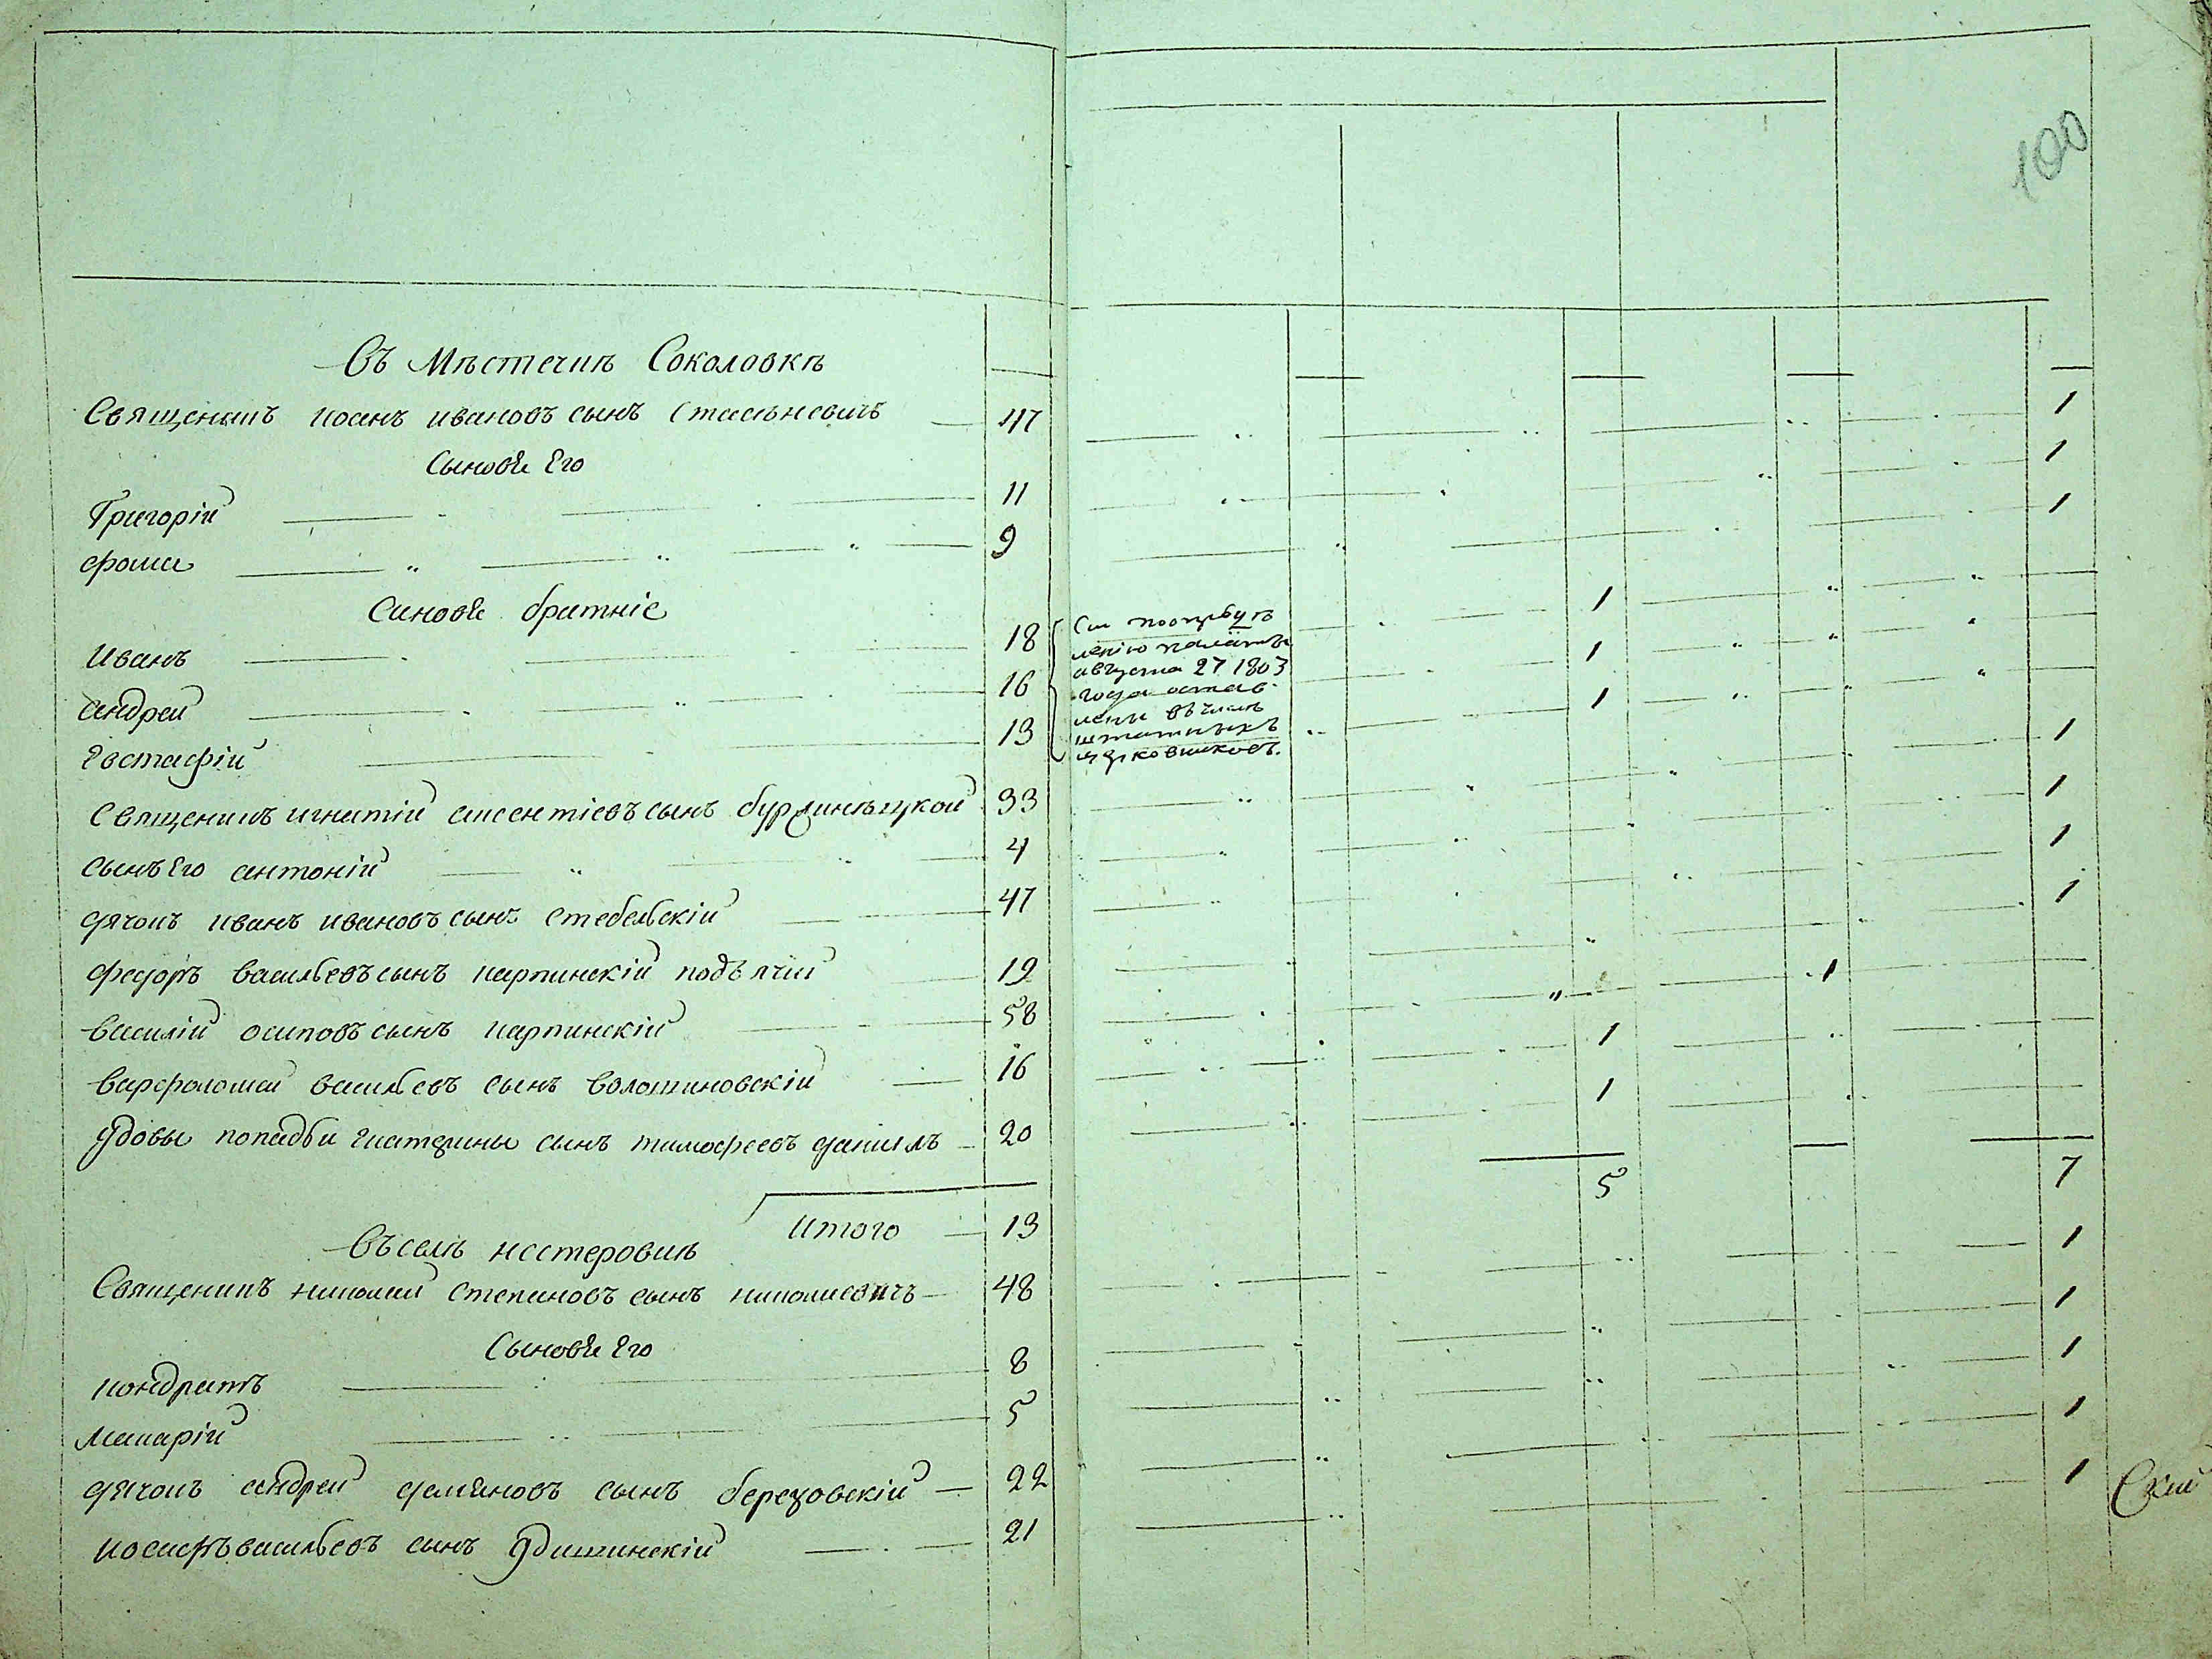 100
Въ Мѣстечкѣ Соколовкѣ
Священикъ иоанъ ивановъ сынъ 47 1
Сыновя Его
Григорій 11 1
фома 9 1
Синовя братніе
Иванъ 18 1
андрей 16 1
Евстафій 13 1
Сіи
августа 27 1803
года остав
лени въ числѣ
штатныхъ
церковниковъ.
священикъ игнатій авсентіевъ сынъ 33 1
сынъ Его антоній 4 1
дячокъ иванъ ивановъ сынъ стебелскій 47 1
федоръ васильевъ сынъ карпинскій подъячій 19 1
василій осиповъ сынъ карпинскій 58 1
варфоломей васильевъ сынъ волошиновскій 16 1
удовы попадьи Екатерины сынъ тимофеевъ даниилъ 20 1
Итого 13 5 7
Въ селѣ нестеровкѣ
Священикъ николай степановъ сынъ николаевичъ 48 1
Сыновя Его
кондратъ 8 1
Макарій 5 1
дячокъ андрей демяновъ сынъ березовскій 22 1
иосифъ васильевъ сынъ 21 1
Скій